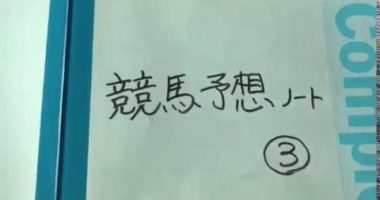 競馬予想ノート
③
Comple